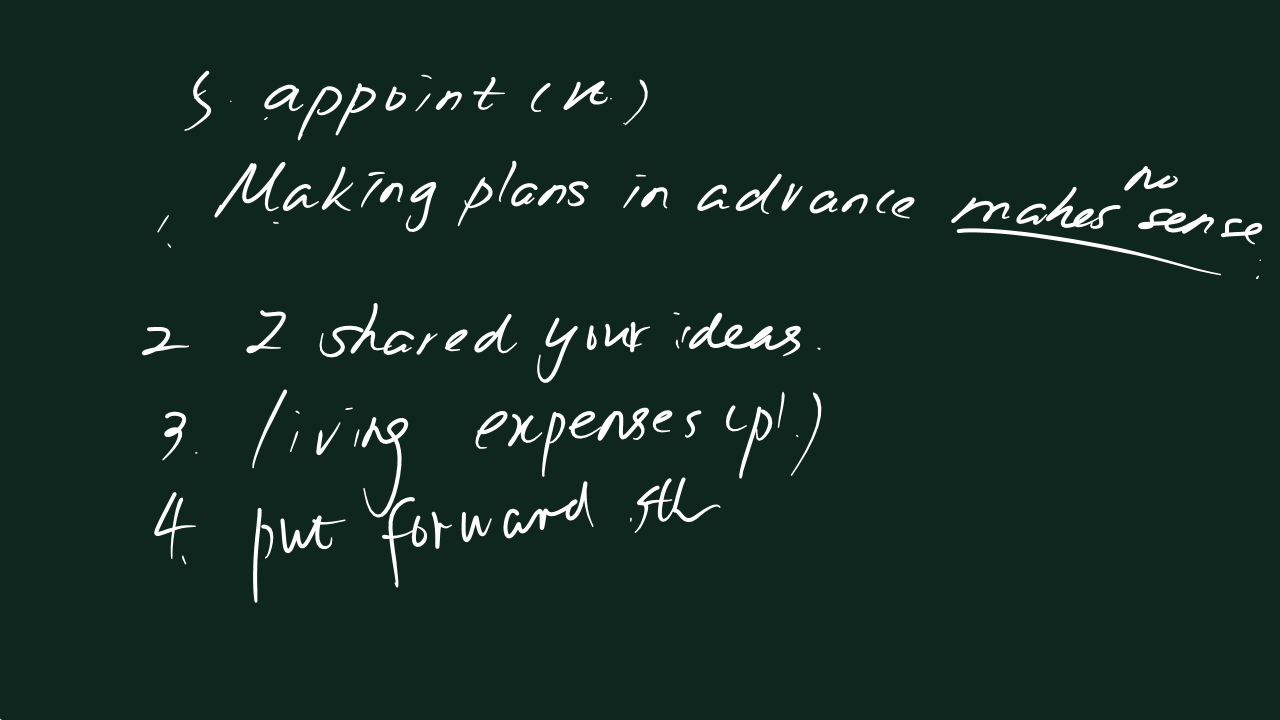 5. appoint (vt.)
1. Making plans in advance makes no sense.
2 I shared your ideas.
3. living expenses (pl.)
4. put forward sth